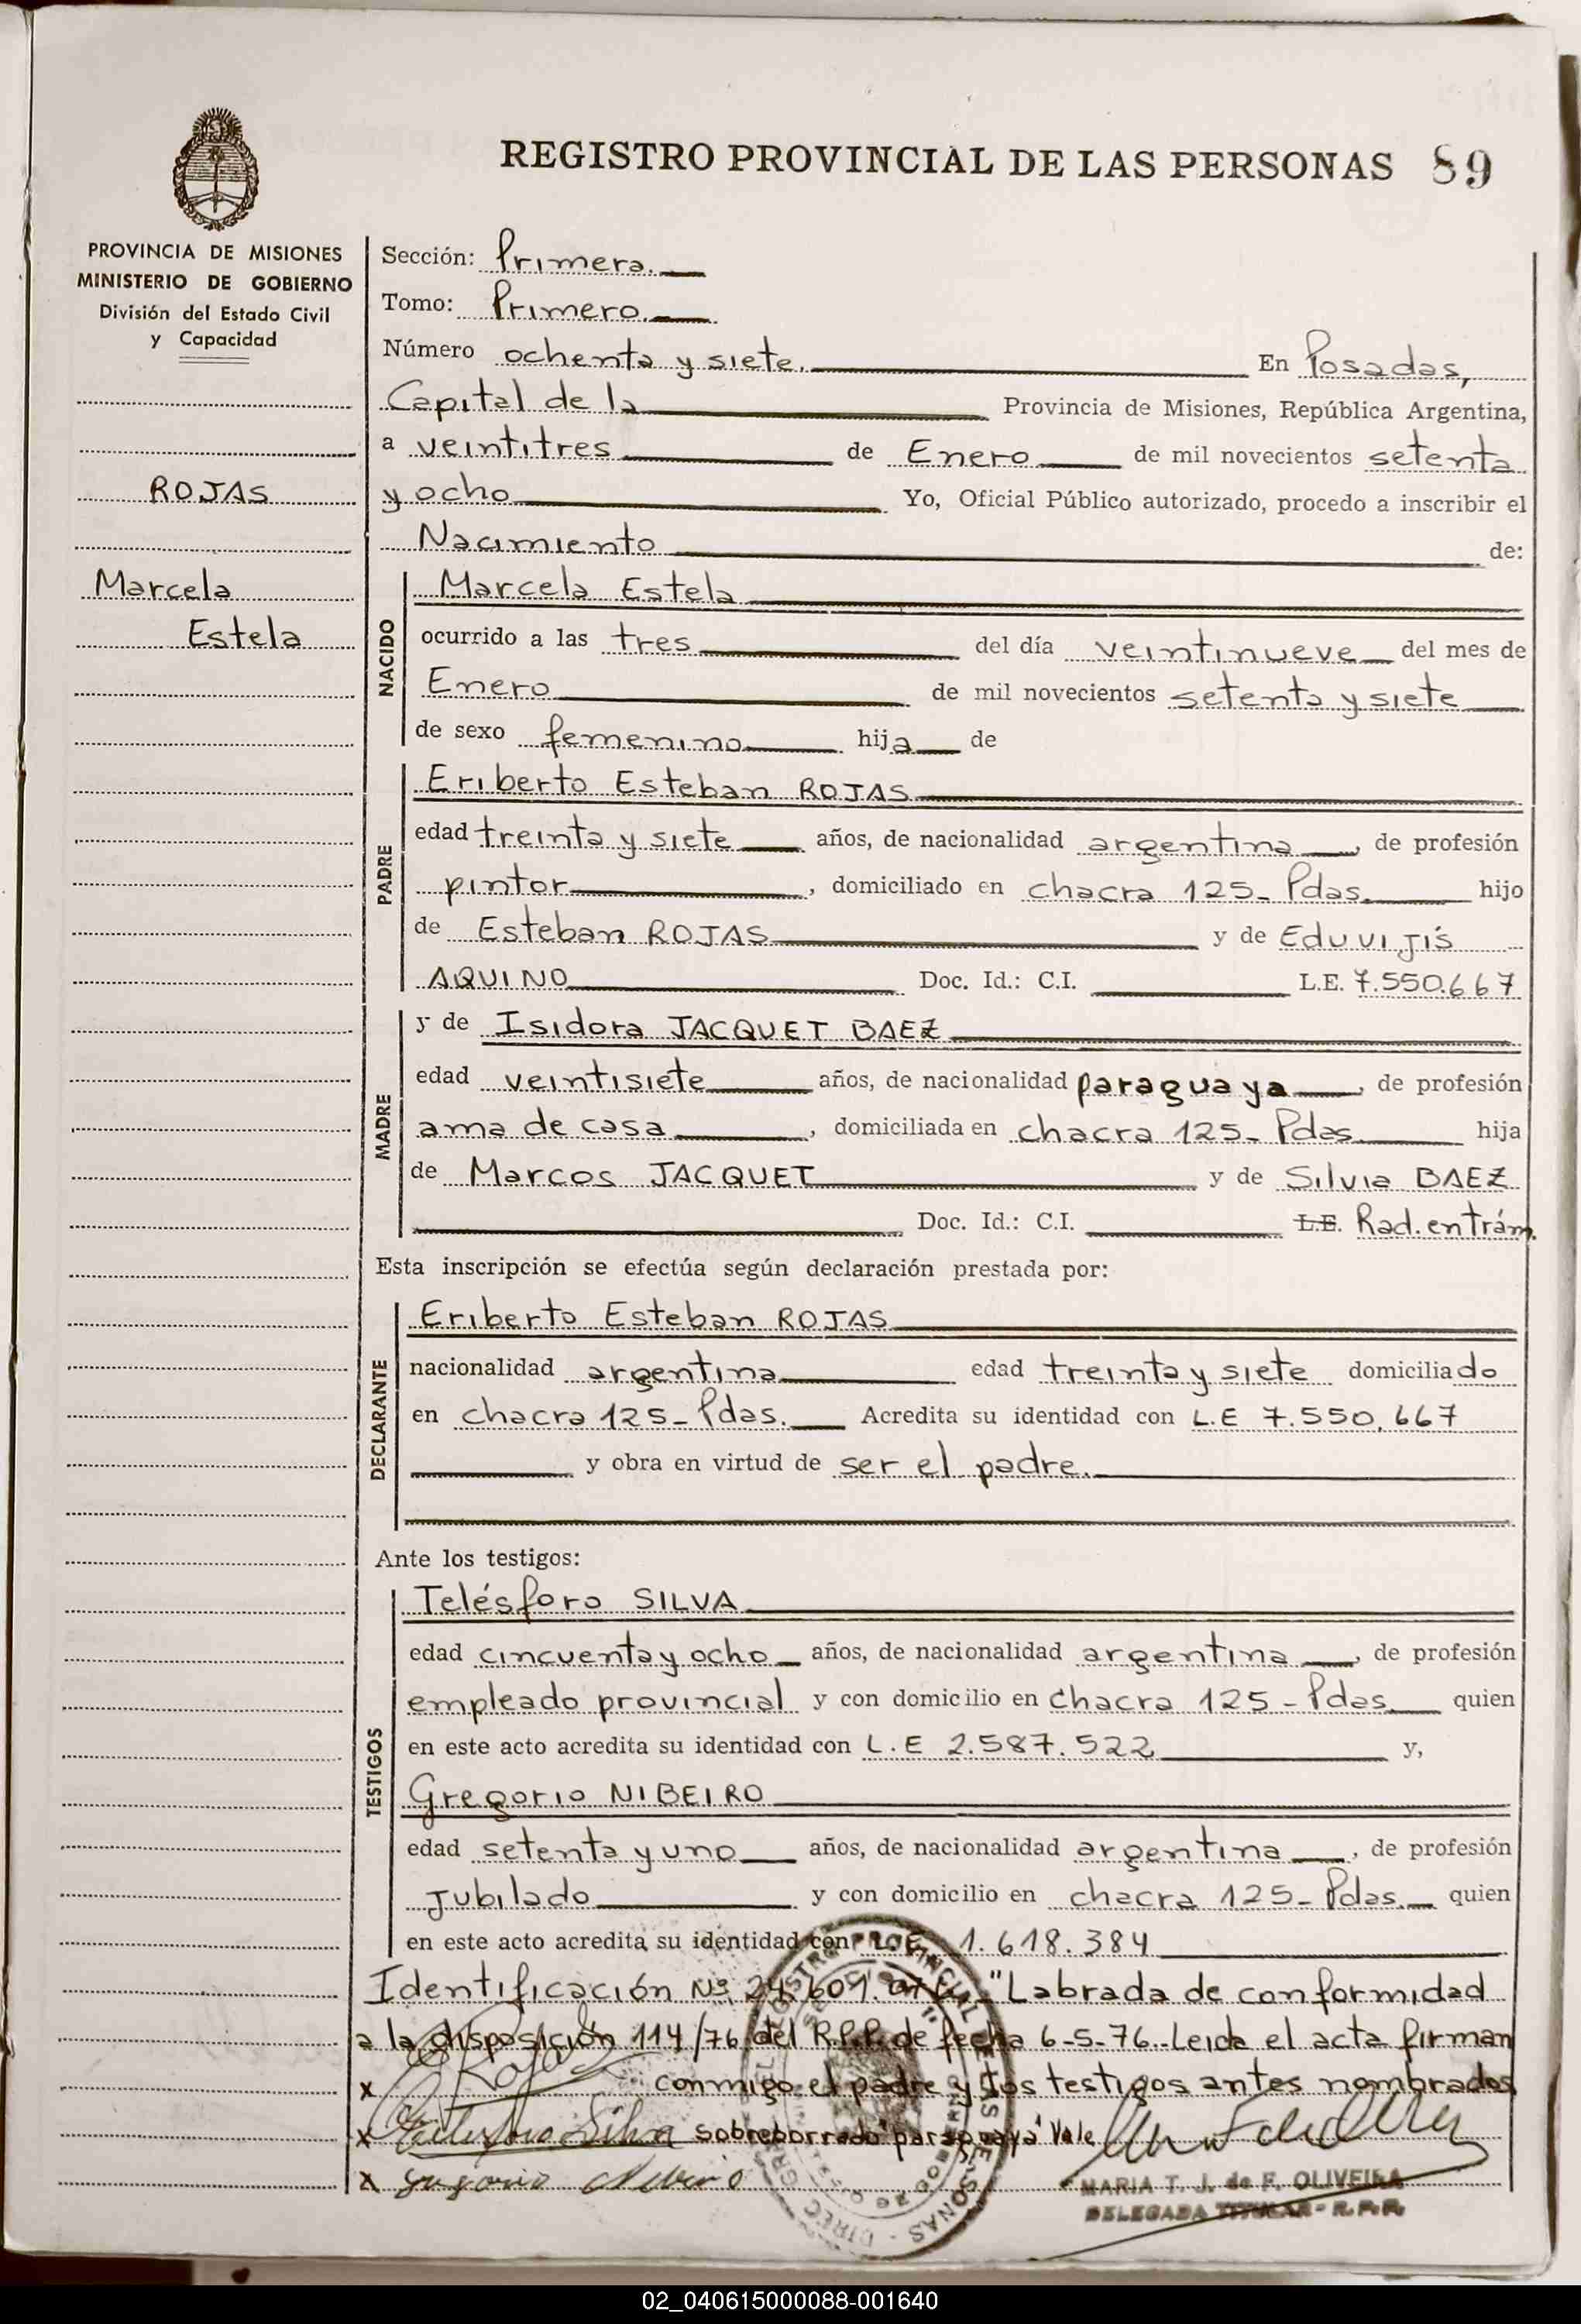 REGISTRO PROVINCIAL DE LAS PERSONAS 89
PROVINCIA DE MISIONES
MINISTERIO DE GOBIERNO
División del Estado Civil
y Capacidad
ROJAS
Marcela
Estela
Sección: Primera.
Tomo: Primero.
Número ochenta y siete. En Posadas,
Capital de la Provincia de Misiones, República Argentina,
a veintitres de Enero de mil novecientos setenta
y ocho Yo, Oficial Público autorizado, procedo a inscribir el
Nacimiento de:
NACIDO
Marcela Estela
ocurrido a las tres del día veintinueve del mes de
Enero de mil novecientos setenta y siete
de sexo femenino hija de
PADRE
Eriberto Esteban ROJAS
edad treinta y siete años, de nacionalidad argentina, de profesión
pintor, domiciliado en chacra 125- Pdas. hijo
de Esteban ROJAS y de Eduvijis
AQUINO Doc. Id.: C.I. L.E. 7.550.667
MADRE
y de Isidora JACQUET BAEZ
edad veintisiete años, de nacionalidad paraguaya, de profesión
ama de casa, domiciliada en chacra 125- Pdas. hija
de Marcos JACQUET y de Silvia BAEZ
Doc. Id.: C.I. L.E. Rad. en trám.
Esta inscripción se efectúa según declaración prestada por:
DECLARANTE
Eriberto Esteban ROJAS
nacionalidad argentina edad treinta y siete domiciliado
en chacra 125- Pdas. Acredita su identidad con L.E 7.550.667
y obra en virtud de ser el padre.
Ante los testigos:
TESTIGOS
Telésforo SILVA
edad cincuenta y ocho años, de nacionalidad argentina, de profesión
empleado provincial y con domicilio en chacra 125- Pdas. quien
en este acto acredita su identidad con L.E 2.587.522 y,
Gregorio NIBEIRO
edad setenta y uno años, de nacionalidad argentina, de profesión
Jubilado y con domicilio en chacra 125- Pdas. quien
en este acto acredita su identidad con L.E. 1.618.384
Identificación Nº "Labrada de conformidad
a la disposición 114/76 del R.P.P. de fecha 6-5-76.. Leida el acta firman
x Rojas conmigo el padre y los testigos antes nombrados
x Telesforo Silva sobreborrado "paraguaya" Vale
x Gregorio
MARIA T. J. de F. OLIVEIRA
DELEGADA TITULAR - R.P.P.
02_040615000088-001640